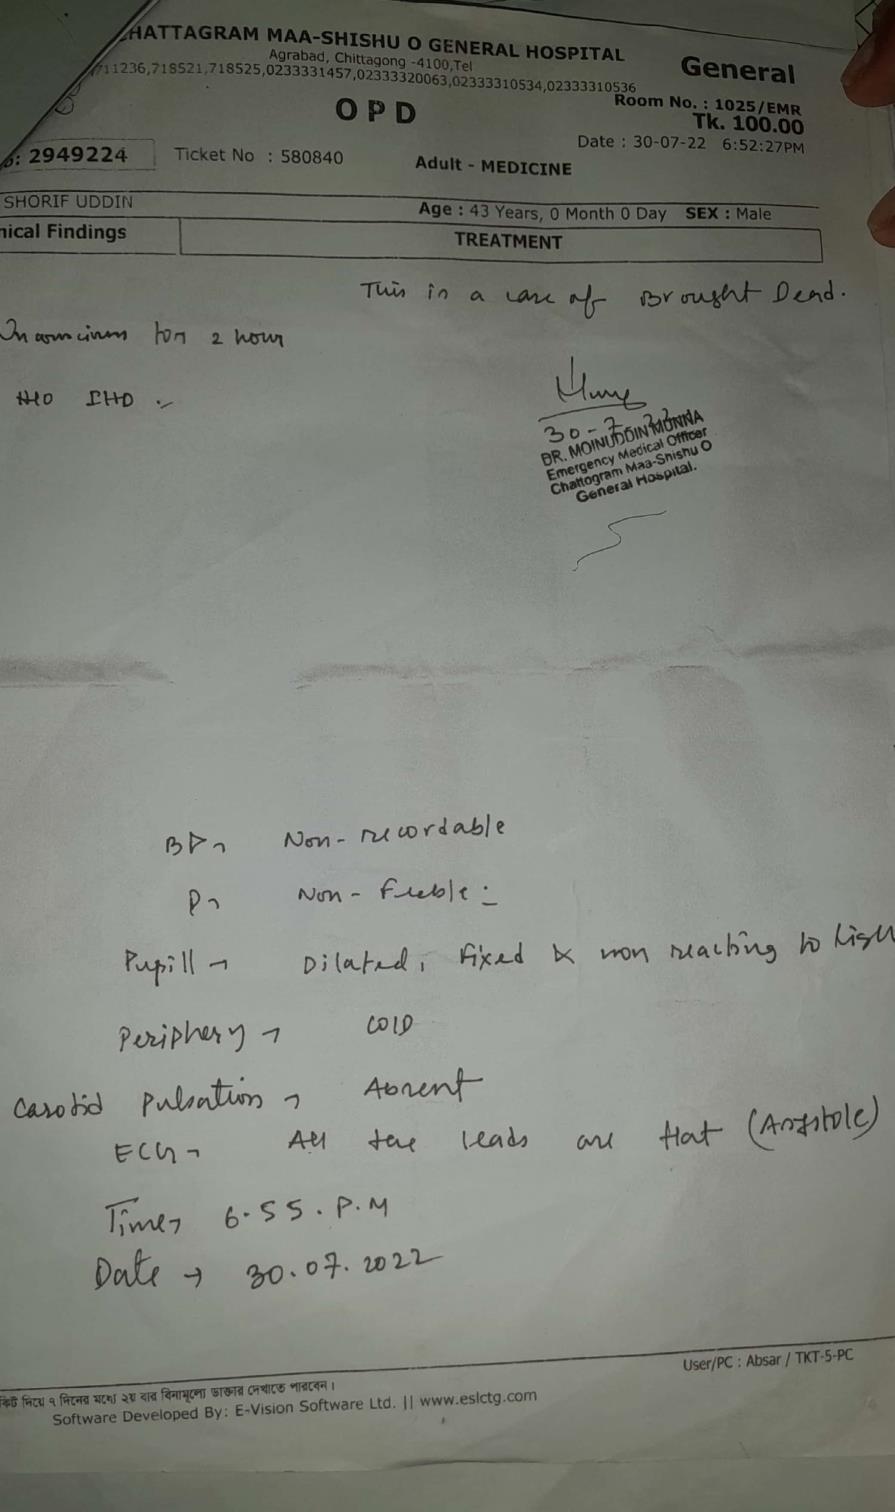 HATTAGRAM MAA-SHISHU O GENERAL HOSPITAL
General
Agrabad, Chittagong -4100,Tel
711236,718521,718525,0233331457,02333320063,02333310534,02333310536
Room No. : 1025/EMR
OPD
Tk. 100.00
Date : 30-07-22 6:52:27PM
: 2949224
Ticket No : 580840
Adult - MEDICINE
SHORIF UDDIN
Age : 43 Years, 0 Month 0 Day SEX : Male
nical Findings
TREATMENT
This is a case of Brought Dead.
for 2 hour
H/O IHD
30-7-22
DR. MOINUDDIN MUNNA
Emergency Medical Officer
Chattogram Maa-Shishu O
General Hospital.
BP → Non-recordable
P → Non-Feeble
Pupill → Dilated, fixed & non reacting to ligh
Periphery → cold
Carotid Pulsation → Absent
ECG → All the leads are flat (Asystole)
Time → 6.55.P.M
Date → 30.07.2022
User/PC : Absar / TKT-5-PC
নিয়ে ৭ দিনের মধ্যে ২য় বার বিনামূল্যে ডাক্তার দেখাতে পারবেন।
Software Developed By: E-Vision Software Ltd. || www.eslctg.com